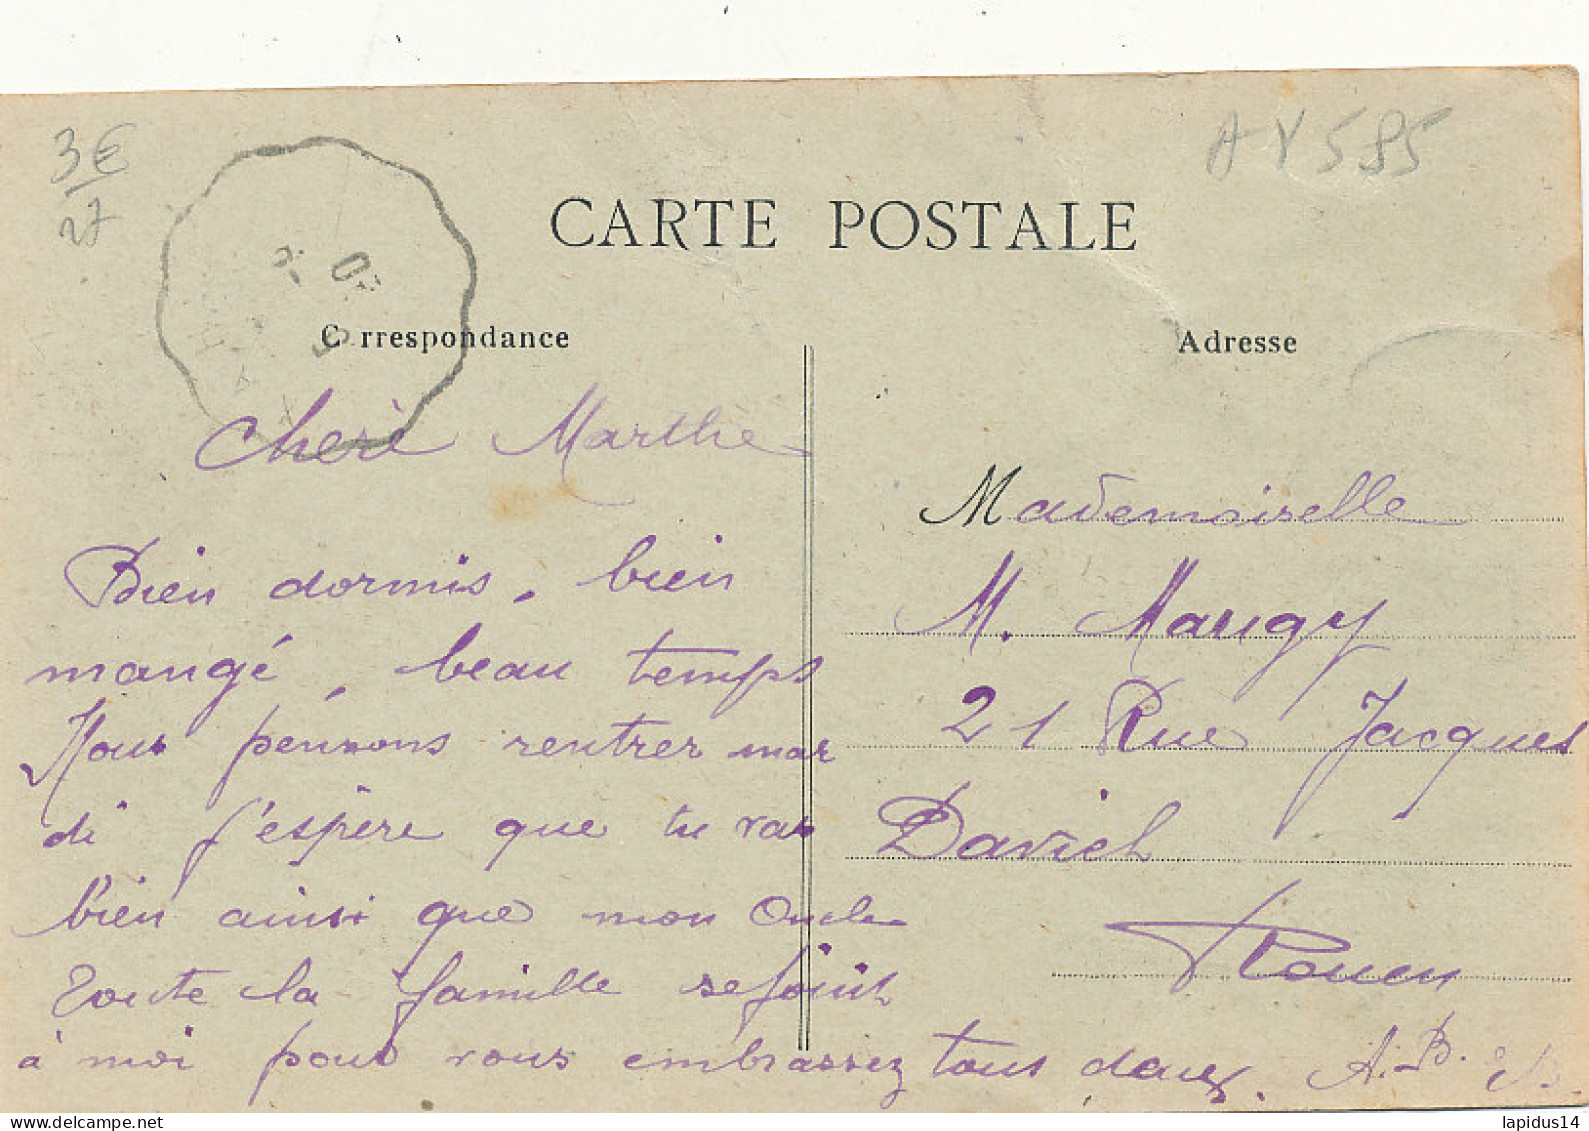 3€
27
AY 595
CARTE POSTALE
Correspondance
Adresse
Cherè Marthe
Bien dormis, bien
mangé, beau temps
Nous pensons rentrer mar
di j'espère que tu vas
bien ainsi que mon Oncle
toute la famille se joint
à moi pour vous embrassez tous deux. A.B.
Mademoiselle
M. Maugy
21 Rue Jacques
Daviel
Rouen
delcampe.net
lapidus14